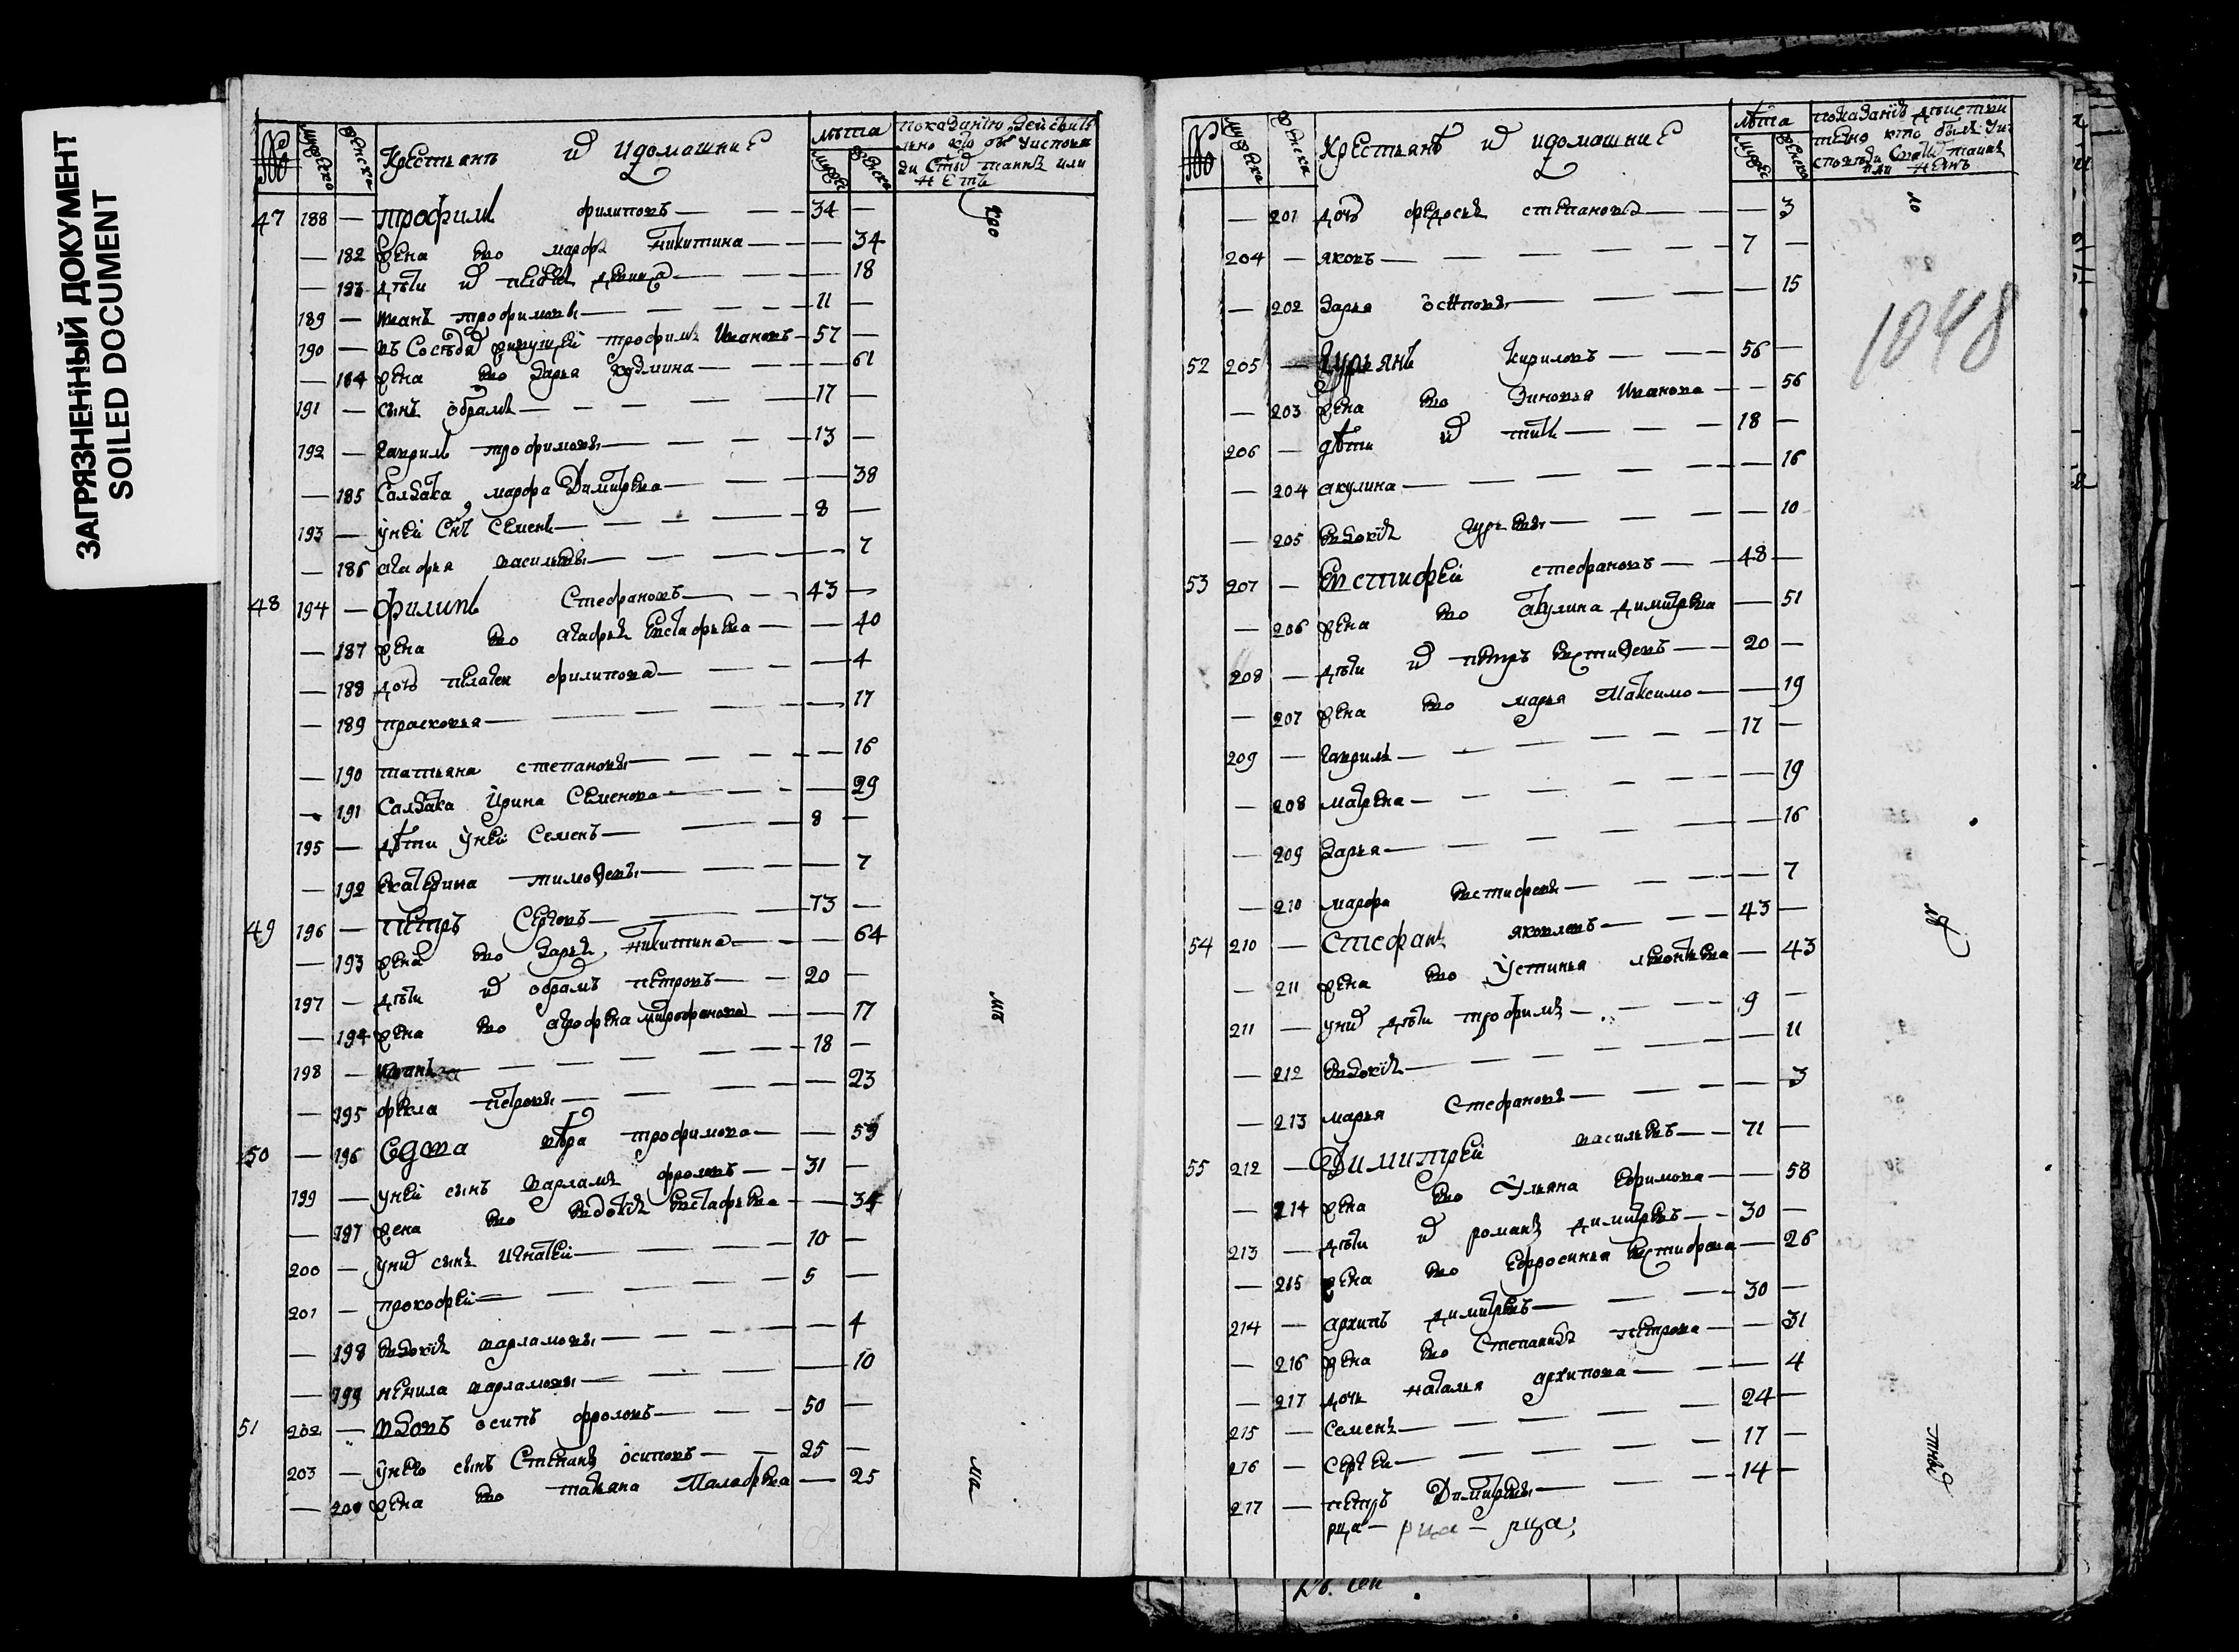 ЗАГРЯЗНЕННЫЙ ДОКУМЕНТ
SOILED DOCUMENT
мужеска женска Крестьянъ и идомашние лѣта
47 188 — трофимъ филиповъ — 34 —
— 182 жена ево марфа никитина — — 34
— 183 дѣти и девица — — 18
189 — иванъ трофимовы — 11 —
190 — въ Соседя живущей трофимъ ивановъ — 57 —
— 184 жена ево дарья кузмина — — 61
191 — сынъ обрамъ — 17 —
192 — гаврилъ трофимовы — 13 —
— 185 Салдатка марфа димитрева — — 38
193 — у ней Снъ Семенъ — 8 —
— 186 агафья васильевы — — 7
48 194 — филипъ Стефановъ — 43 —
— 187 жена ево агафья евстафьева — — 40
— 188 дочь пелагея филипова — — 4
— 189 прасковья — — 17
— 190 татьяна степановы — — 16
— 191 Салдатка ирина Семенова — — 29
195 — дѣти у ней Семенъ — 8 —
— 192 екатерина тимофеевы — — 7
49 196 — петръ Сергѣевъ — 73 —
— 193 жена ево дарья никитина — — 64
197 — дѣти и обрамъ петровъ — 20 —
— 194 жена ево агрофена митрофанова — — 17
198 — иванъ — 18 —
— 195 фекла петровы — — 23
50 — 196 вдова трофимова — — 59
199 — у ней сынъ варламъ фроловъ — 31 —
— 197 жена ево евдокия евстафьева — — 34
200 — у них сынъ игнатей — 10 —
201 — прокофей — 5 —
— 198 евдокия варламовы — — 4
— 199 ненила варламовы — — 10
51 202 — вдовъ осипъ фроловъ — 50 —
203 — у него сынъ Степанъ осиповъ — 25 —
— 200 жена ево татьяна Малафеева — — 25
мужеска женска Крестьянъ и идомашние лѣта
— 201 дочь федосья степанова — — 3
204 — яковъ — 7 —
— 202 дарья осиповы — — 15
1048
52 205 — гурьянъ кириловъ — 56 —
— 203 жена ево зиновья иванова — — 56
206 — дѣти и титъ — 18 —
— 204 акулина — — 16
— 205 евдокия гурьевы — — 10
53 207 — евстифей стефановъ — 48 —
— 206 жена ево акулина димитрева — — 51
208 — дѣти и петръ евстифеевъ — 20 —
— 207 жена ево марья Максимо — — 19
209 — гаврилъ — 17 —
— 208 матрена — — 19
— 209 дарья — — 16
— 210 марфа евстифеевы — — 7
54 210 — Стефанъ яковлевъ — 43 —
— 211 жена ево устинья леонтьева — — 43
211 — у них дѣти трофимъ — 9 —
— 212 евдокия — — 11
— 213 марья Стефановы — — 3
55 212 — Димитрей васильевъ — 71 —
— 214 жена ево ульяна ефимова — — 58
213 — дѣти и романъ димитревъ — 30 —
— 215 жена ево ефросинья евстифеева — — 26
214 — архипъ димитревъ — 30 —
— 216 жена ево Степанида петрова — — 31
— 217 дочь наталья архипова — — 4
215 — Семенъ — 24 —
216 — Сергеи — 17 —
217 — петръ Димитревы — 14 —
рца — рца — рца;